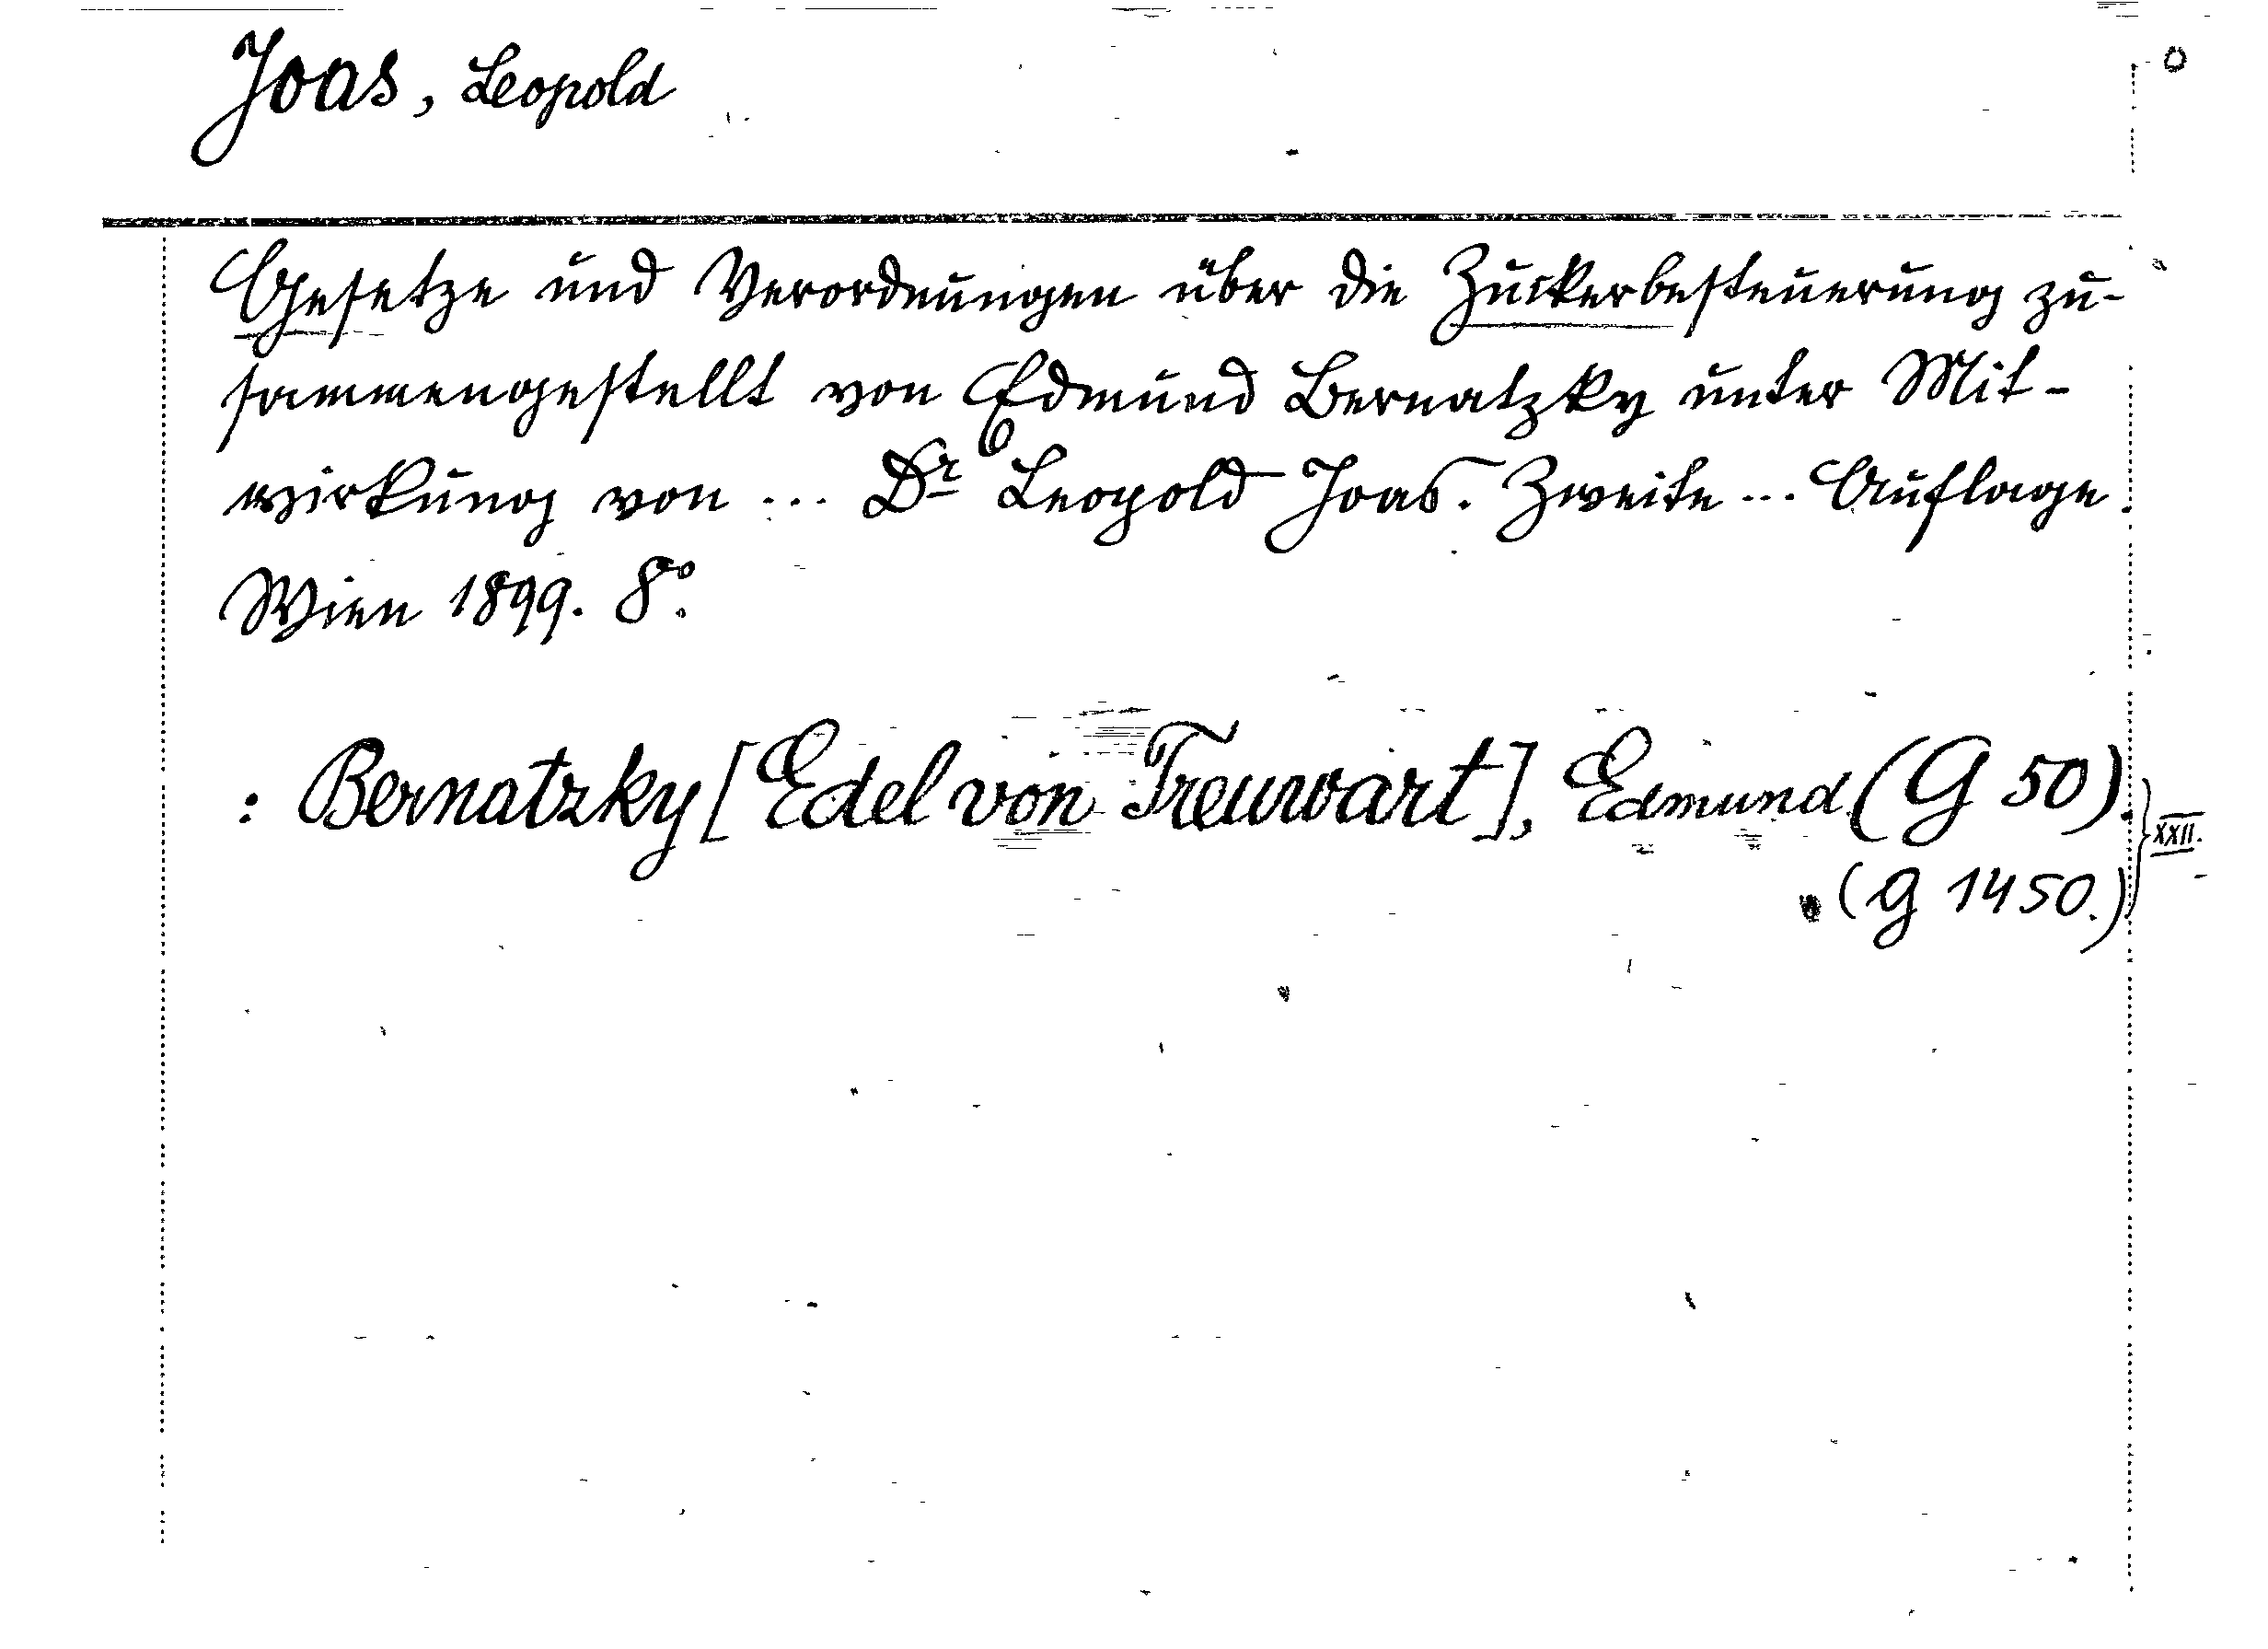 Joas, Leopold
Gesetze und Verordnungen über die Zuckerbesteuerung zu-
sammengestellt von Edmund Bernatzky unter Mit-
wirkung von ... Dr Leopold Joas. Zweite ... Auflage.
Wien 1899. 8°.
: Bernatzky [Edel von Treuwart], Edmund (G 50).
XXII.
(G 1450.)